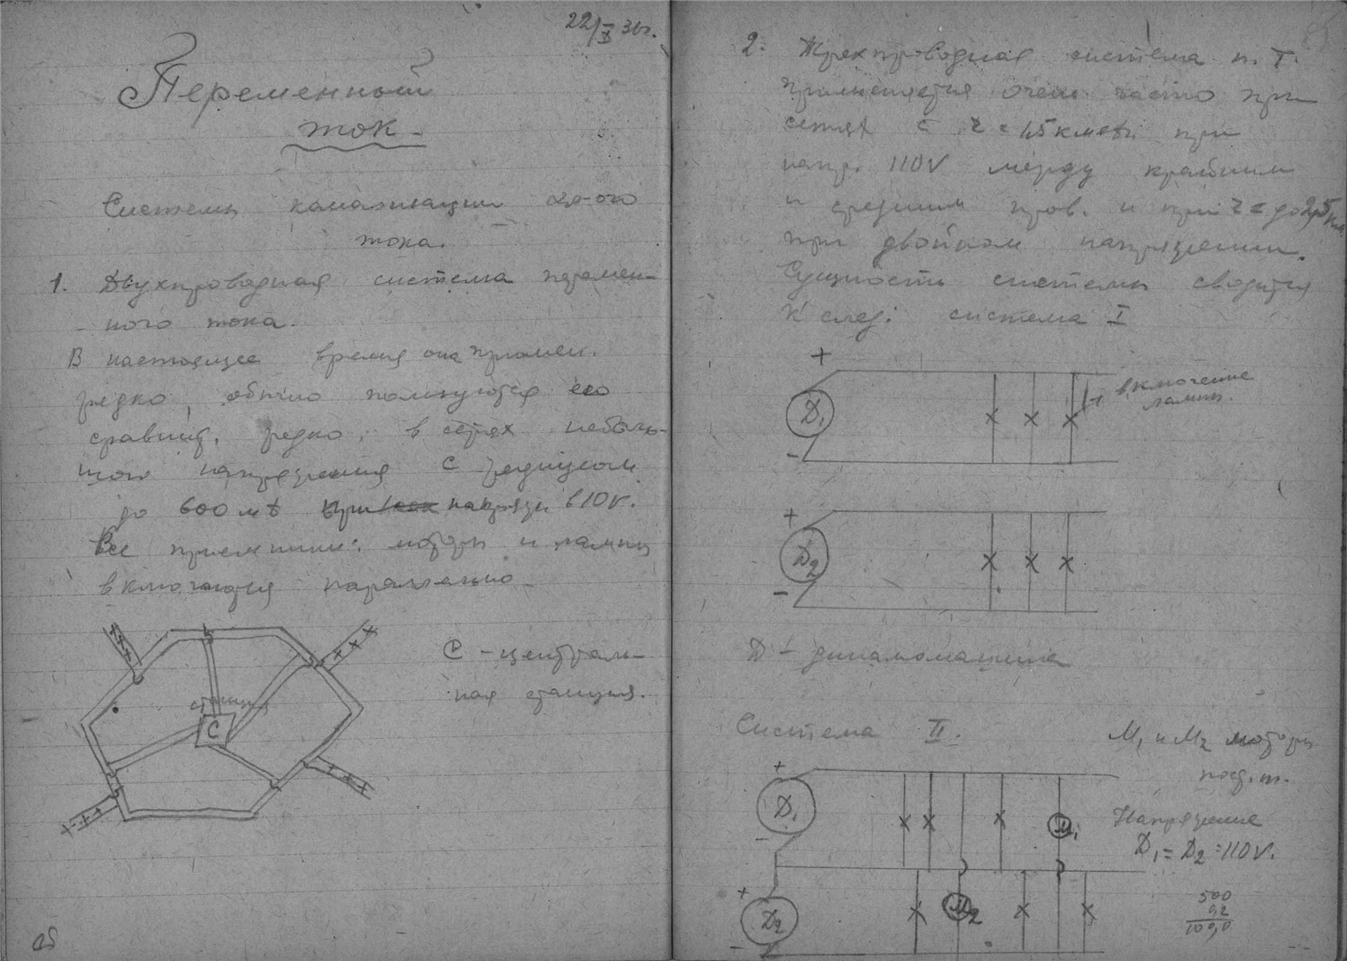 22/X 30г.
Переменный
ток.
Системы канализации эл-ого
тока.
1. Двухпроводная система перемен-
ного тока.
В настоящее время она примен.
редко, обычно пользуются ею
сравнит. редко, в сетях неболь-
шого напряжения с радиусом
до 600 мт при напряж. в 110 v.
Все приемники: моторы и лампы
включаются параллельно.
станция
С
С - централь-
ная станция.
2. Трехпроводная система п. т.
применяется очень часто при
сетях с r = 1,5 км при
напр. 110V между крайним
и средним пров. и при r = до 2,5 км.
при двойном напряжении.
Сущность системы сводится
к след: система I
+
Д1
-
включение
лампы.
+
Д2
-
Д - динамомашина
Система II.
М1 и М2 моторы
пост. т.
+
Д1
-
М1
Напряжение
Д1 = Д2 = 110 V.
+
Д2
-
М2
500
0,2
100,0